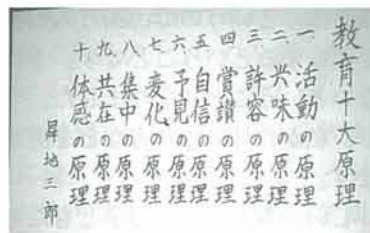 教育十大原理
一、活動の原理
二、兴味の原理
三、許容の原理
四、賞讃の原理
五、自信の原理
六、予見の原理
七、変化の原理
八、集中の原理
九、共在の原理
十、体感の原理
昇地三郎